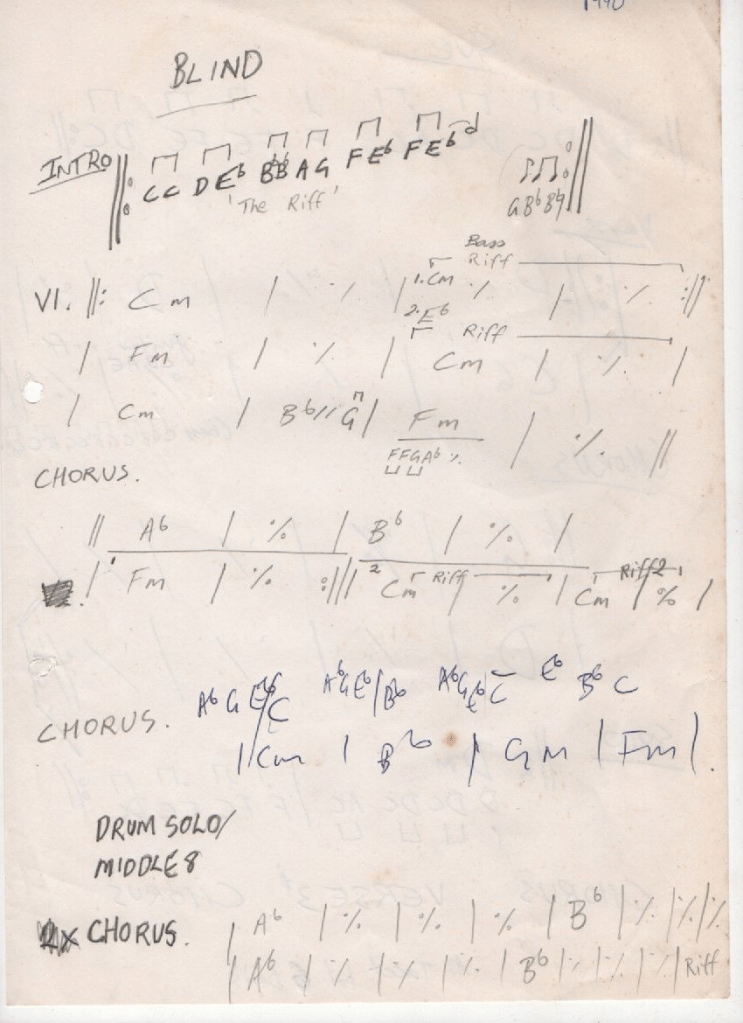 1990
BLIND
INTRO ||: CC D E♭ B♭B♭ AG F E♭ F E♭ d G B♭ B♮ :||
'The Riff'
Bass
Riff
V1. ||: Cm | ٪ | 1. Cm ٪ | ٪ :||
2. E♭
Riff
| Fm | ٪ | Cm | ٪ |
| Cm | B♭ // G | Fm | ٪ ||
FFGA♭ ٪
CHORUS.
|| A♭ | ٪ | B♭ | ٪ |
Riff Riff 2
| 1 Fm | ٪ :|| 2 Cm | ٪ | Cm | ٪ |
A♭ G E♭/C A♭ G E♭/B♭ A♭ G E♭ C E♭ B♭ C
CHORUS. | Cm | B♭ | Gm | Fm |.
DRUM SOLO/
MIDDLE 8
x CHORUS. | A♭ | ٪ | ٪ | ٪ | B♭ | ٪ | ٪ | ٪
| A♭ | ٪ | ٪ | ٪ | B♭ | ٪ | ٪ | ٪ | Riff